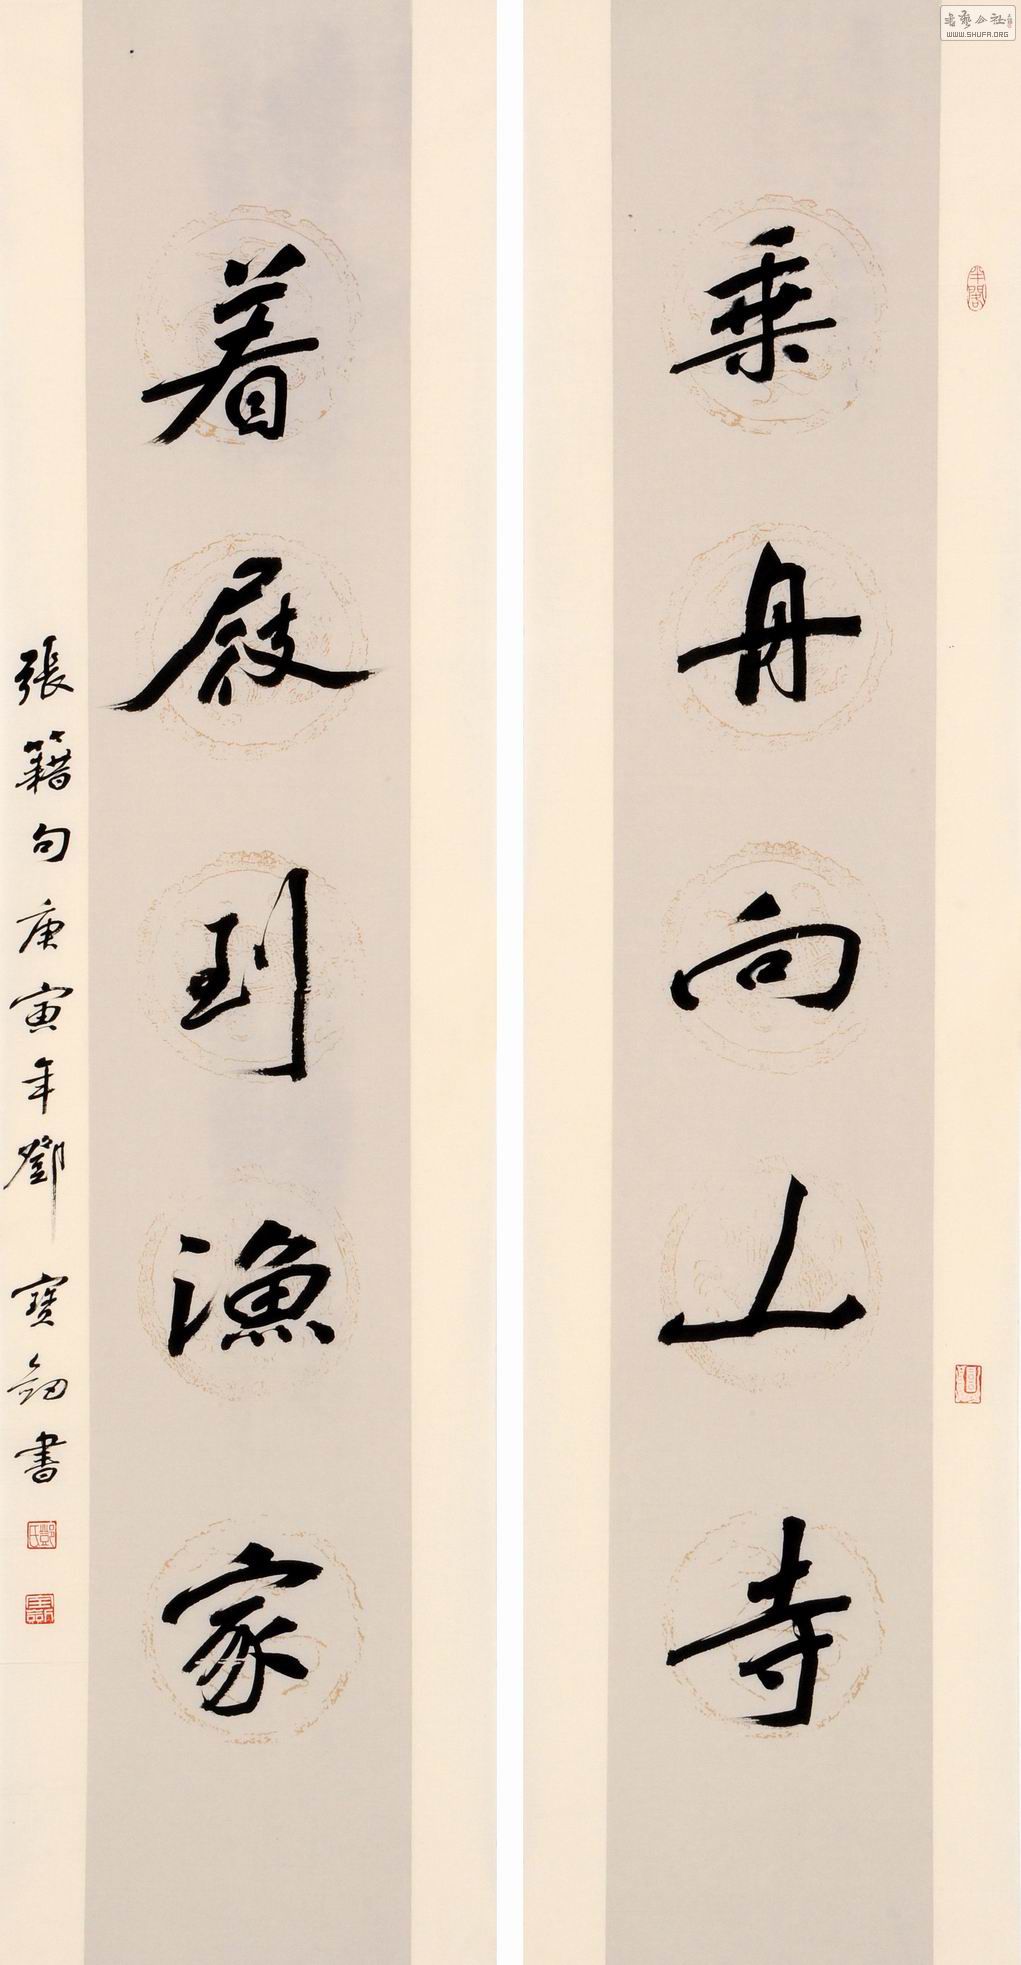 乘舟向山寺
着屐到渔家
張籍句庚寅年鄧寶劍書
WWW.SHUFA.ORG